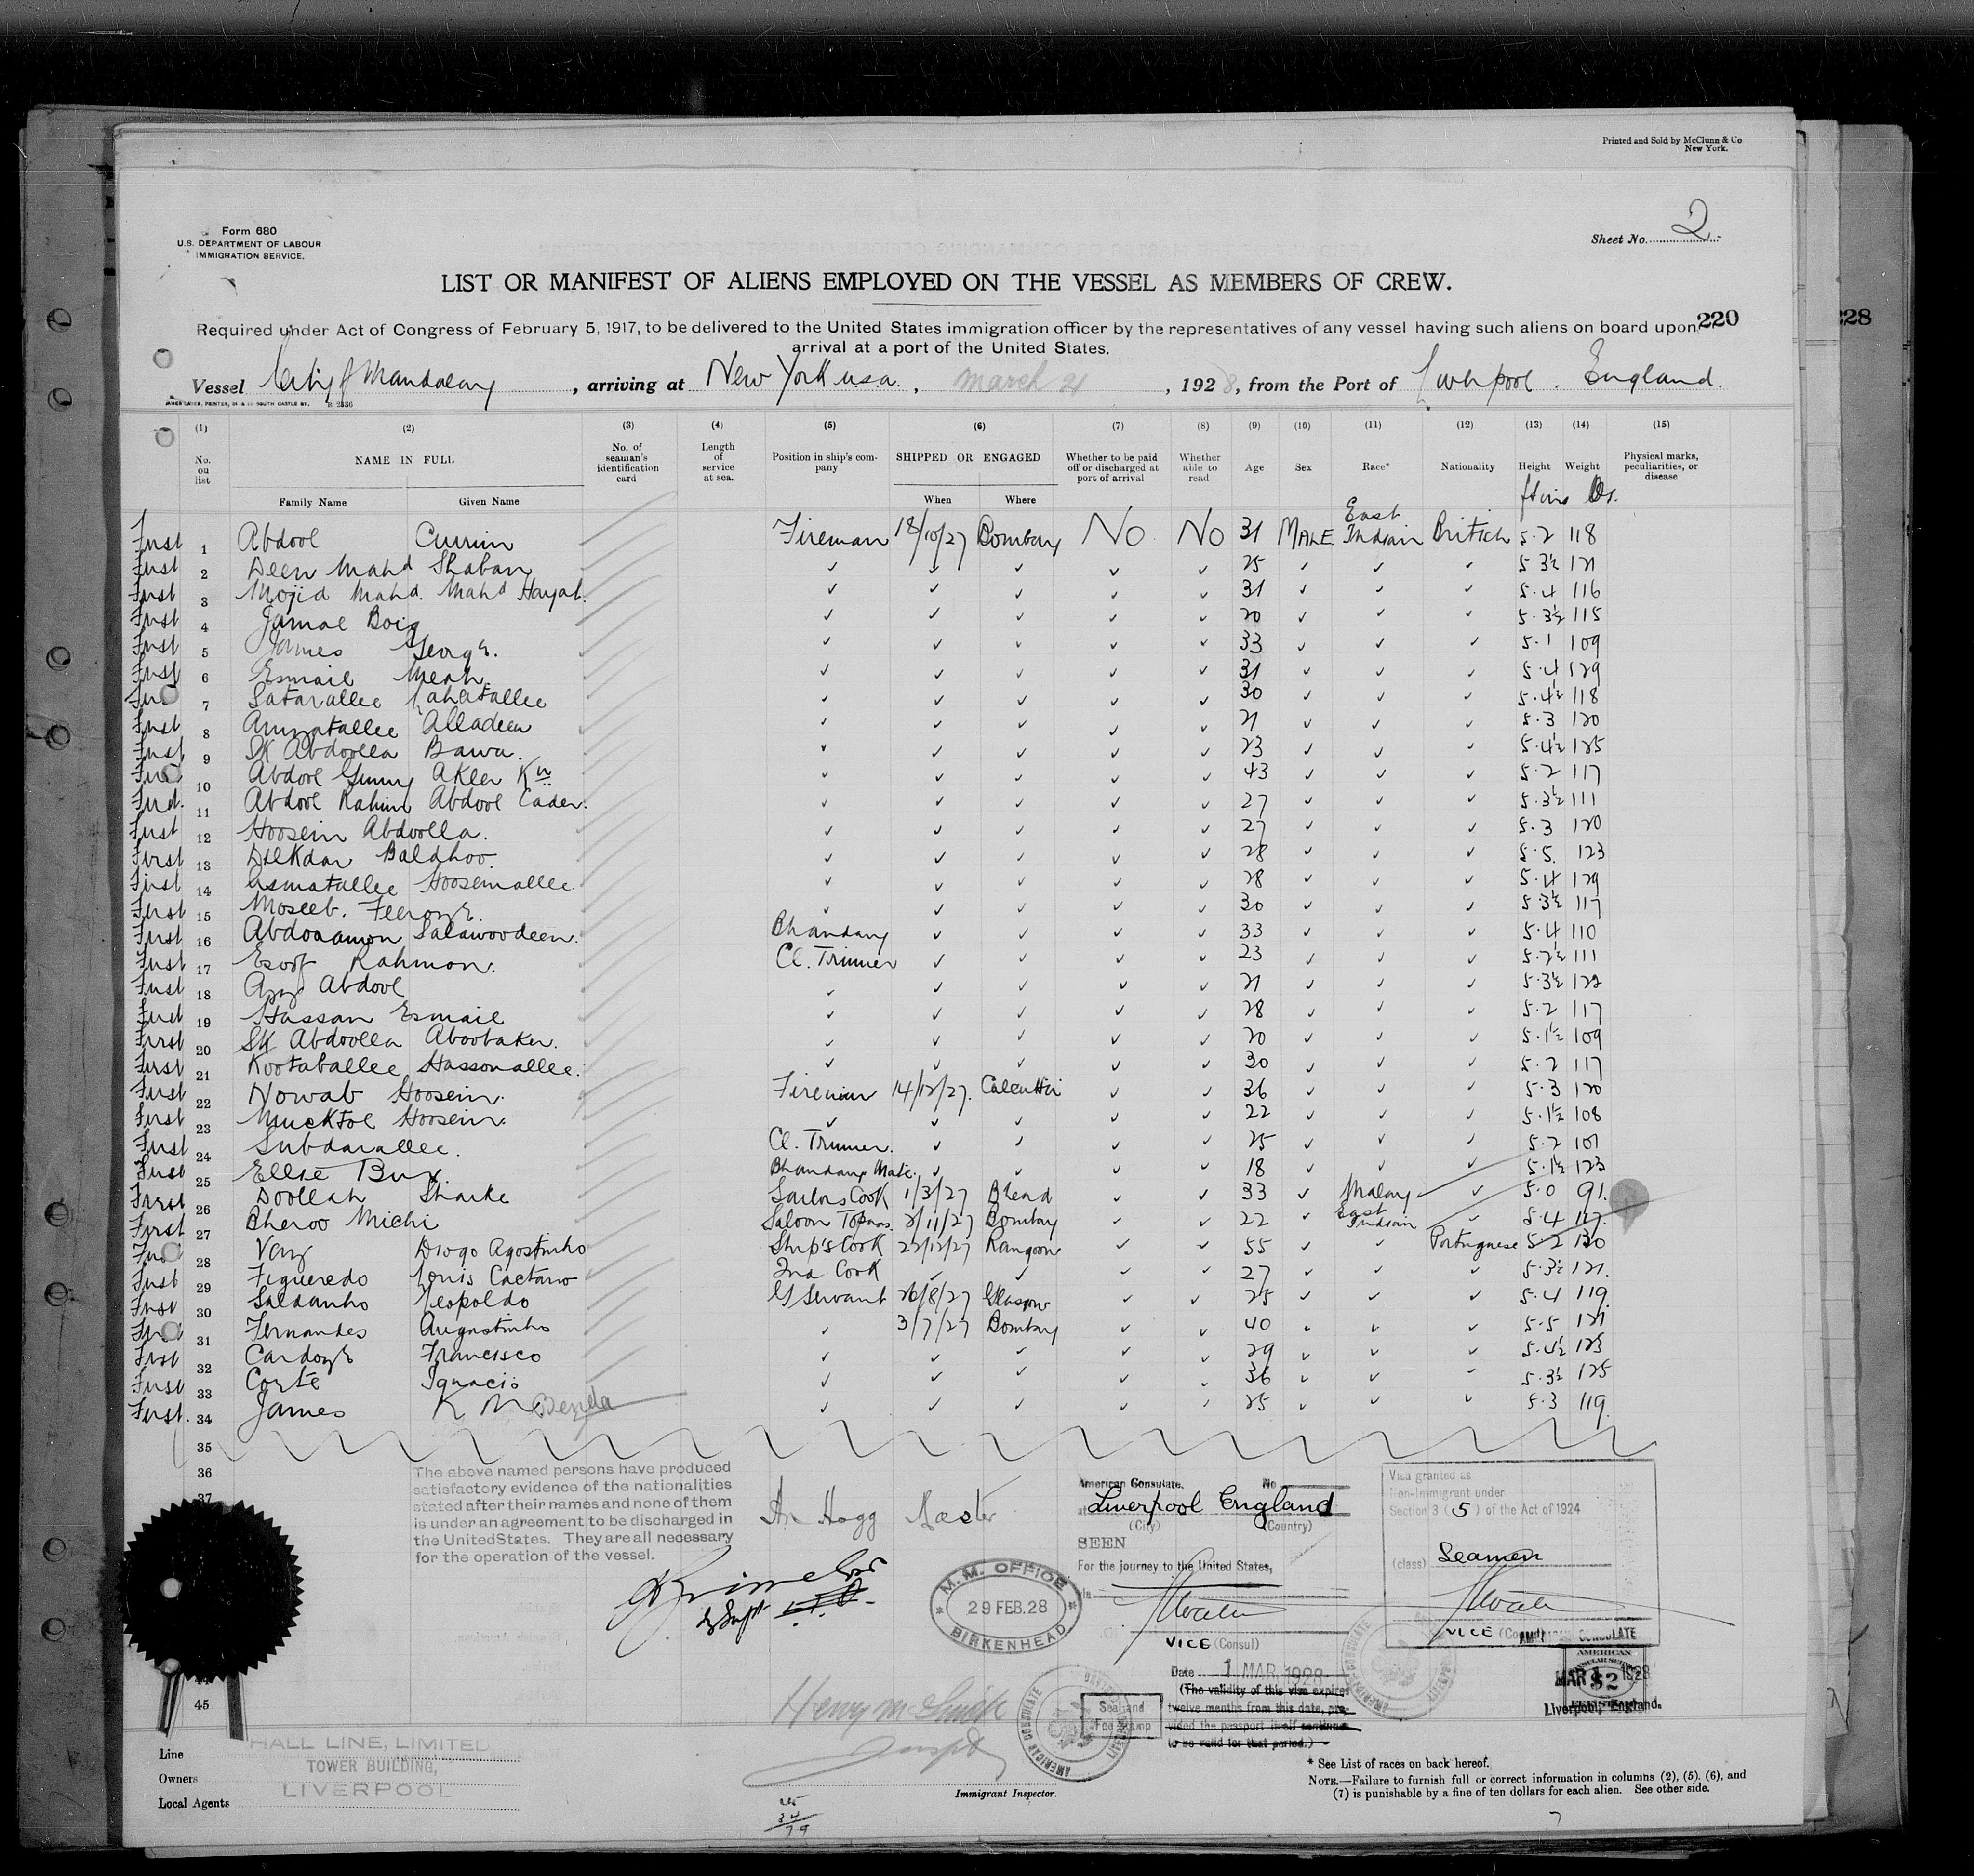 Printed and Sold by McClunn & Co
New York.
Form 680
U.S. DEPARTMENT OF LABOUR
IMMIGRATION SERVICE.
Sheet No. 2
LIST OR MANIFEST OF ALIENS EMPLOYED ON THE VESSEL AS MEMBERS OF CREW.
Required under Act of Congress of February 5, 1917, to be delivered to the United States immigration officer by the representatives of any vessel having such aliens on board upon
220
228
arrival at a port of the United States.
Vessel City of Mandalay, arriving at New York usa., March 21, 1928, from the Port of Liverpool. England.
(1) (2) (3) (4) (5) (6) (7) (8) (9) (10) (11) (12) (13) (14) (15)
No. on list NAME IN FULL No. of seaman's identification card Length of service at sea. Position in ship's company SHIPPED OR ENGAGED Whether to be paid off or discharged at port of arrival Whether able to read Age Sex Race* Nationality Height Weight Physical marks, peculiarities, or disease
Family Name Given Name When Where
First 1 Abdool Currim Fireman 18/10/27 Bombay No No 31 MALE East Indian British 5.2 118
First 2 Deen Mahd Shaban ✓ ✓ ✓ ✓ ✓ 25 ✓ ✓ ✓ 5 3½ 121
First 3 Mojid Mahd. Mahd Hayat. ✓ ✓ ✓ ✓ ✓ 31 ✓ ✓ ✓ 5.4 116
First 4 Jamal Boig ✓ ✓ ✓ ✓ ✓ 20 ✓ ✓ ✓ 5.3½ 115
First 5 James George. ✓ ✓ ✓ ✓ ✓ 33 ✓ ✓ ✓ 5.1 109
First 6 Esmail Meah. ✓ ✓ ✓ ✓ ✓ 31 ✓ ✓ ✓ 5.4 129
7 Satarallee ✓ ✓ ✓ ✓ ✓ 30 ✓ ✓ ✓ 5.4½ 118
First 8 Alladeen ✓ ✓ ✓ ✓ ✓ 21 ✓ ✓ ✓ 5.3 120
First 9 SK Abdoolla Bawa. ✓ ✓ ✓ ✓ ✓ 23 ✓ ✓ ✓ 5.4½ 125
10 Abdool Gunny ✓ ✓ ✓ ✓ ✓ 43 ✓ ✓ ✓ 5.2 117
First 11 Abdool Rahim Abdool Cader. ✓ ✓ ✓ ✓ ✓ 27 ✓ ✓ ✓ 5.3½ 111
First 12 Hoosein Abdoolla. ✓ ✓ ✓ ✓ ✓ 27 ✓ ✓ ✓ 5.3 120
First 13 Dilkdar Baldhoo. ✓ ✓ ✓ ✓ ✓ 28 ✓ ✓ ✓ 5.5. 123
First 14 Asmatullee Hooseinallee. ✓ ✓ ✓ ✓ ✓ 28 ✓ ✓ ✓ 5.4 129
First 15 Moseeb. Feeroze. ✓ ✓ ✓ ✓ ✓ 30 ✓ ✓ ✓ 5.3½ 117
First 16 Salawoodeen. Bhandary ✓ ✓ ✓ ✓ 33 ✓ ✓ ✓ 5.4 110
First 17 Esoof Rahmon. Cl. Trimmer ✓ ✓ ✓ ✓ 23 ✓ ✓ ✓ 5.2½ 111
First 18 Abdool ✓ ✓ ✓ ✓ ✓ 21 ✓ ✓ ✓ 5.3½ 122
First 19 Hassan Esmail ✓ ✓ ✓ ✓ ✓ 28 ✓ ✓ 5.2 117
First 20 SK Abdoolla Aboobaker. ✓ ✓ ✓ ✓ ✓ 20 ✓ ✓ ✓ 5.1½ 109
First 21 Kootaballee Hassonallee. ✓ ✓ ✓ ✓ ✓ 30 ✓ ✓ ✓ 5.2 117
First 22 Nowab Hoosein. Fireman 14/12/27. Calcutta ✓ ✓ 36 ✓ ✓ ✓ 5.3 120
First 23 Mucktol Hoosein. ✓ ✓ ✓ ✓ ✓ 22 ✓ ✓ ✓ 5.1½ 108
First 24 Subdarallee. Cl. Trimmer. ✓ ✓ ✓ ✓ 25 ✓ ✓ ✓ 5.2 101
First 25 Ellie Bux. Bhandary Mate. ✓ ✓ ✓ ✓ 18 ✓ ✓ ✓ 5.1½ 123
First 26 Doollah Sharke Sailors Cook 1/3/27 B'head ✓ ✓ 33 ✓ Malay ✓ 5.0 91.
First 27 Bheroo Michi Saloon Topass. 2/11/27 Bombay ✓ ✓ 22 ✓ East Indian ✓ 5.4 117.
28 Vaz Diogo Agostinho Ship's Cook 22/12/27 Rangoon ✓ ✓ 55 ✓ ✓ Portuguese 5.2 130
First 29 Figueredo Louis Caetano 2nd Cook ✓ ✓ ✓ ✓ 27 ✓ ✓ ✓ 5.3½ 121.
First 30 Saldanho Leopoldo G Servant 26/8/27 Glasgow ✓ ✓ 25 ✓ ✓ ✓ 5.4 119
31 Fernandes Augustinho ✓ 3/7/27 Bombay ✓ ✓ 40 ✓ ✓ ✓ 5.5 121
First 32 Cardoze Francisco ✓ ✓ ✓ ✓ ✓ 29 ✓ ✓ ✓ 5.4½ 123
First 33 Corte Ignacio ✓ ✓ ✓ ✓ ✓ 36 ✓ ✓ ✓ 5.3½ 125
First. 34 James ✓ ✓ ✓ ✓ ✓ 25 ✓ ✓ ✓ 5.3 119
35
36
37
45
The above named persons have produced
satisfactory evidence of the nationalities
stated after their names and none of them
is under an agreement to be discharged in
the United States. They are all necessary
for the operation of the vessel.
Hogg Master
M.M. OFFICE
29 FEB. 28
BIRKENHEAD
American Consulate. No
at Liverpool England
(City) (Country)
SEEN
For the journey to the United States,
VICE (Consul)
Date 1 MAR 1928
(The validity of this visa expires
twelve months from this date, pro-
vided the passport itself continues
to be valid for that period.)
Seal and
Fee Stamp
AMERICAN CONSULATE
Visa granted as
Non-Immigrant under
Section 3 (5) of the Act of 1924
(class) Seamen
VICE (Consul)
AMERICAN CONSULATE
AMERICAN
$2
MAR 1 1928
Liverpool, England.
Immigrant Inspector.
Line
Owners
Local Agents
HALL LINE, LIMITED
TOWER BUILDING,
LIVERPOOL
* See List of races on back hereof.
NOTE.—Failure to furnish full or correct information in columns (2), (5). (6), and
(7) is punishable by a fine of ten dollars for each alien. See other side.
45
34
79